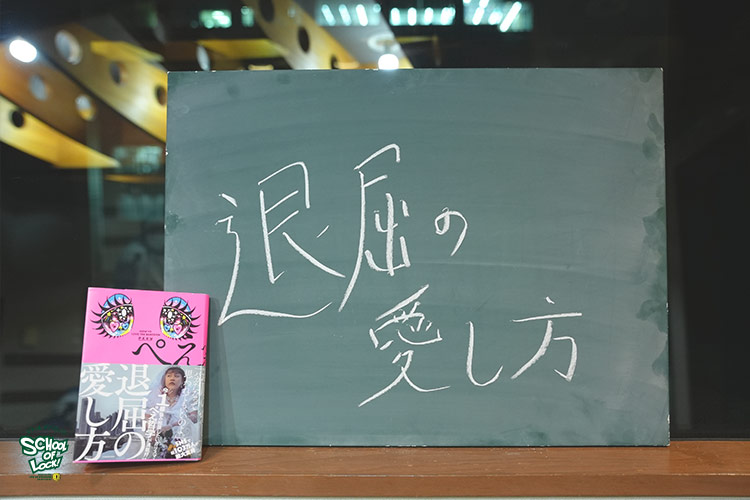 退屈の
愛し方
ぺえ
退屈の
愛し方
SCHOOL
OF
LOCK!